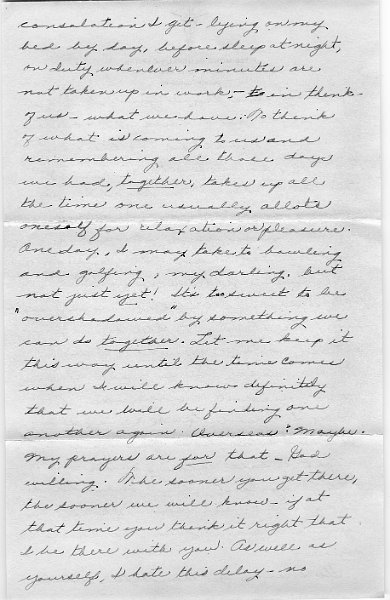 consolation I get - lying on my
bed by day, before sleep at night,
on duty whenever minutes are
not taken up in work, - is in think-
of us - what we have. To think
of what is coming to us and
remembering all those days
we had, together, takes up all
the time one usually allots
oneself for relaxation or pleasure.
One day, I may take to bowling
and golfing, my darling, but
not just yet! It's to sweet to be
"overshadowed" by something we
can do together. Let me keep it
this way until the time comes
when I will know definitely
that we will be finding one
another again. Overseas? Maybe.
My prayers are for that - God
willing. The sooner you get there,
the sooner we will know - if at
that time you think it right that
I be there with you. As well as
yourself, I hate this delay - no